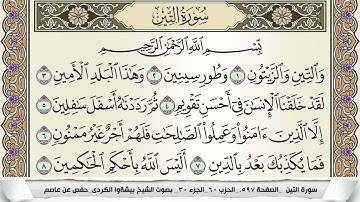 سُورَةُ التِّينِ
بِسْمِ اللَّهِ الرَّحْمَٰنِ الرَّحِيمِ
وَالتِّينِ وَالزَّيْتُونِ ١ وَطُورِ سِينِينَ ٢ وَهَٰذَا الْبَلَدِ الْأَمِينِ ٣
لَقَدْ خَلَقْنَا الْإِنسَانَ فِي أَحْسَنِ تَقْوِيمٍ ٤ ثُمَّ رَدَدْنَاهُ أَسْفَلَ سَافِلِينَ ٥
إِلَّا الَّذِينَ آمَنُوا وَعَمِلُوا الصَّالِحَاتِ فَلَهُمْ أَجْرٌ غَيْرُ مَمْنُونٍ ٦
فَمَا يُكَذِّبُكَ بَعْدُ بِالدِّينِ ٧ أَلَيْسَ اللَّهُ بِأَحْكَمِ الْحَاكِمِينَ ٨
سورة التين _الصفحة ٥٩٧_الحزب ٦٠_الجزء ٣٠_ بصوت الشيخ بيشةوا الكردى_حفص عن عاصم